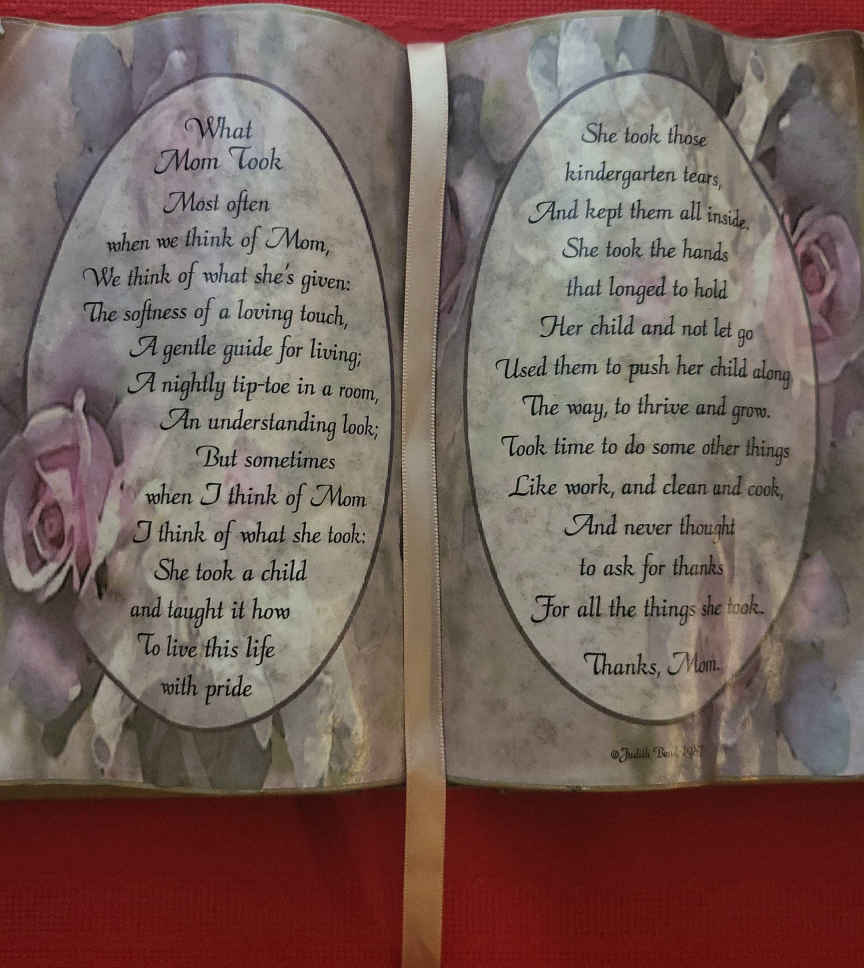 What
Mom Took
Most often
when we think of Mom,
We think of what she's given:
The softness of a loving touch,
A gentle guide for living;
A nightly tip-toe in a room,
An understanding look;
But sometimes
when I think of Mom
I think of what she took:
She took a child
and taught it how
To live this life
with pride
She took those
kindergarten tears,
And kept them all inside.
She took the hands
that longed to hold
Her child and not let go
Used them to push her child along
The way, to thrive and grow.
Took time to do some other things
Like work, and clean and cook,
And never thought
to ask for thanks
For all the things she took.
Thanks, Mom.
©Judith